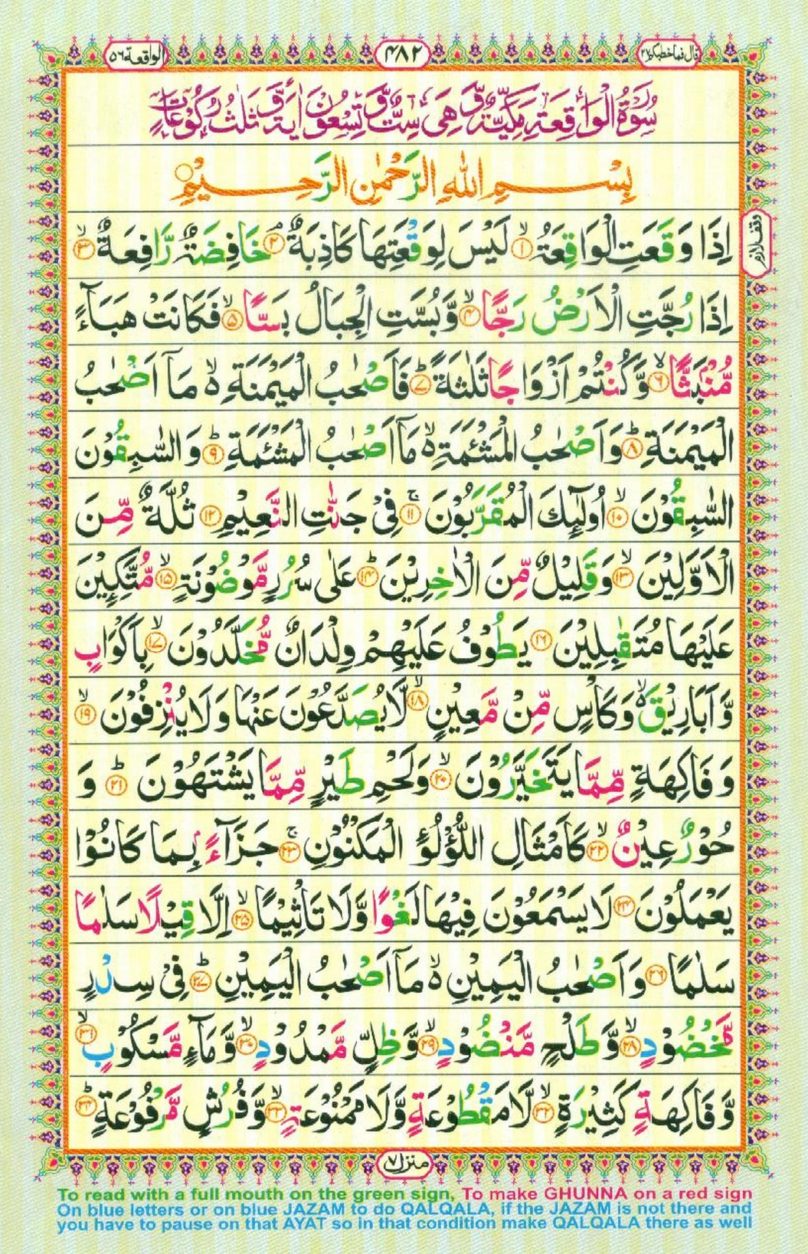 الواقعة ٥٦
۴۸۲
قال فما خطبكم ٢٧
سُوْرَةُ الْوَاقِعَةِ مَكِّيَّةٌ وَّهِيَ سِتٌّ وَّتِسْعُوْنَ اٰيَةً وَّثَلٰثُ رُكُوْعَاتٍ
بِسْمِ اللّٰهِ الرَّحْمٰنِ الرَّحِيْمِ
اِذَا وَقَعَتِ الْوَاقِعَةُ ۙ﴿۱﴾ لَيْسَ لِوَقْعَتِهَا كَاذِبَةٌ ۘ﴿۲﴾ خَافِضَةٌ رَّافِعَةٌ ۙ﴿۳﴾
وقف لازم
اِذَا رُجَّتِ الْاَرْضُ رَجًّا ۙ﴿۴﴾ وَّبُسَّتِ الْجِبَالُ بَسًّا ۙ﴿۵﴾ فَكَانَتْ هَبَآءً
مُّنْۢبَثًّا ۙ﴿۶﴾ وَّكُنْتُمْ اَزْوَاجًا ثَلٰثَةً ؕ﴿۷﴾ فَاَصْحٰبُ الْمَيْمَنَةِ ۙ۬ مَاۤ اَصْحٰبُ
الْمَيْمَنَةِ ؕ﴿۸﴾ وَاَصْحٰبُ الْمَشْـَٔمَةِ ۙ۬ مَاۤ اَصْحٰبُ الْمَشْـَٔمَةِ ؕ﴿۹﴾ وَالسّٰبِقُوْنَ
السّٰبِقُوْنَ ۙ﴿۱۰﴾ اُولٰٓئِكَ الْمُقَرَّبُوْنَ ۚ﴿۱۱﴾ فِيْ جَنّٰتِ النَّعِيْمِ ﴿۱۲﴾ ثُلَّةٌ مِّنَ
الْاَوَّلِيْنَ ۙ﴿۱۳﴾ وَقَلِيْلٌ مِّنَ الْاٰخِرِيْنَ ؕ﴿۱۴﴾ عَلٰى سُرُرٍ مَّوْضُوْنَةٍ ۙ﴿۱۵﴾ مُّتَّكِـِٕيْنَ
عَلَيْهَا مُتَقٰبِلِيْنَ ﴿۱۶﴾ يَطُوْفُ عَلَيْهِمْ وِلْدَانٌ مُّخَلَّدُوْنَ ۙ﴿۱۷﴾ بِاَكْوَابٍ
وَّاَبَارِيْقَ ۙ۬ وَكَاْسٍ مِّنْ مَّعِيْنٍ ۙ﴿۱۸﴾ لَّا يُصَدَّعُوْنَ عَنْهَا وَلَا يُنْزِفُوْنَ ۙ﴿۱۹﴾
وَفَاكِهَةٍ مِّمَّا يَتَخَيَّرُوْنَ ۙ﴿۲۰﴾ وَلَحْمِ طَيْرٍ مِّمَّا يَشْتَهُوْنَ ؕ﴿۲۱﴾ وَ
حُوْرٌ عِيْنٌ ۙ﴿۲۲﴾ كَاَمْثَالِ اللُّؤْلُؤِ الْمَكْنُوْنِ ۚ﴿۲۳﴾ جَزَآءًۢ بِمَا كَانُوْا
يَعْمَلُوْنَ ﴿۲۴﴾ لَا يَسْمَعُوْنَ فِيْهَا لَغْوًا وَّلَا تَاْثِيْمًا ۙ﴿۲۵﴾ اِلَّا قِيْلًا سَلٰمًا
سَلٰمًا ﴿۲۶﴾ وَاَصْحٰبُ الْيَمِيْنِ ۙ۬ مَاۤ اَصْحٰبُ الْيَمِيْنِ ؕ﴿۲۷﴾ فِيْ سِدْرٍ
مَّخْضُوْدٍ ۙ﴿۲۸﴾ وَّطَلْحٍ مَّنْضُوْدٍ ۙ﴿۲۹﴾ وَّظِلٍّ مَّمْدُوْدٍ ۙ﴿۳۰﴾ وَّمَآءٍ مَّسْكُوْبٍ ۙ﴿۳۱﴾
وَّفَاكِهَةٍ كَثِيْرَةٍ ۙ﴿۳۲﴾ لَّا مَقْطُوْعَةٍ وَّلَا مَمْنُوْعَةٍ ۙ﴿۳۳﴾ وَّفُرُشٍ مَّرْفُوْعَةٍ ؕ﴿۳۴﴾
منزل ۷
To read with a full mouth on the green sign, To make GHUNNA on a red sign
On blue letters or on blue JAZAM to do QALQALA, if the JAZAM is not there and
you have to pause on that AYAT so in that condition make QALQALA there as well